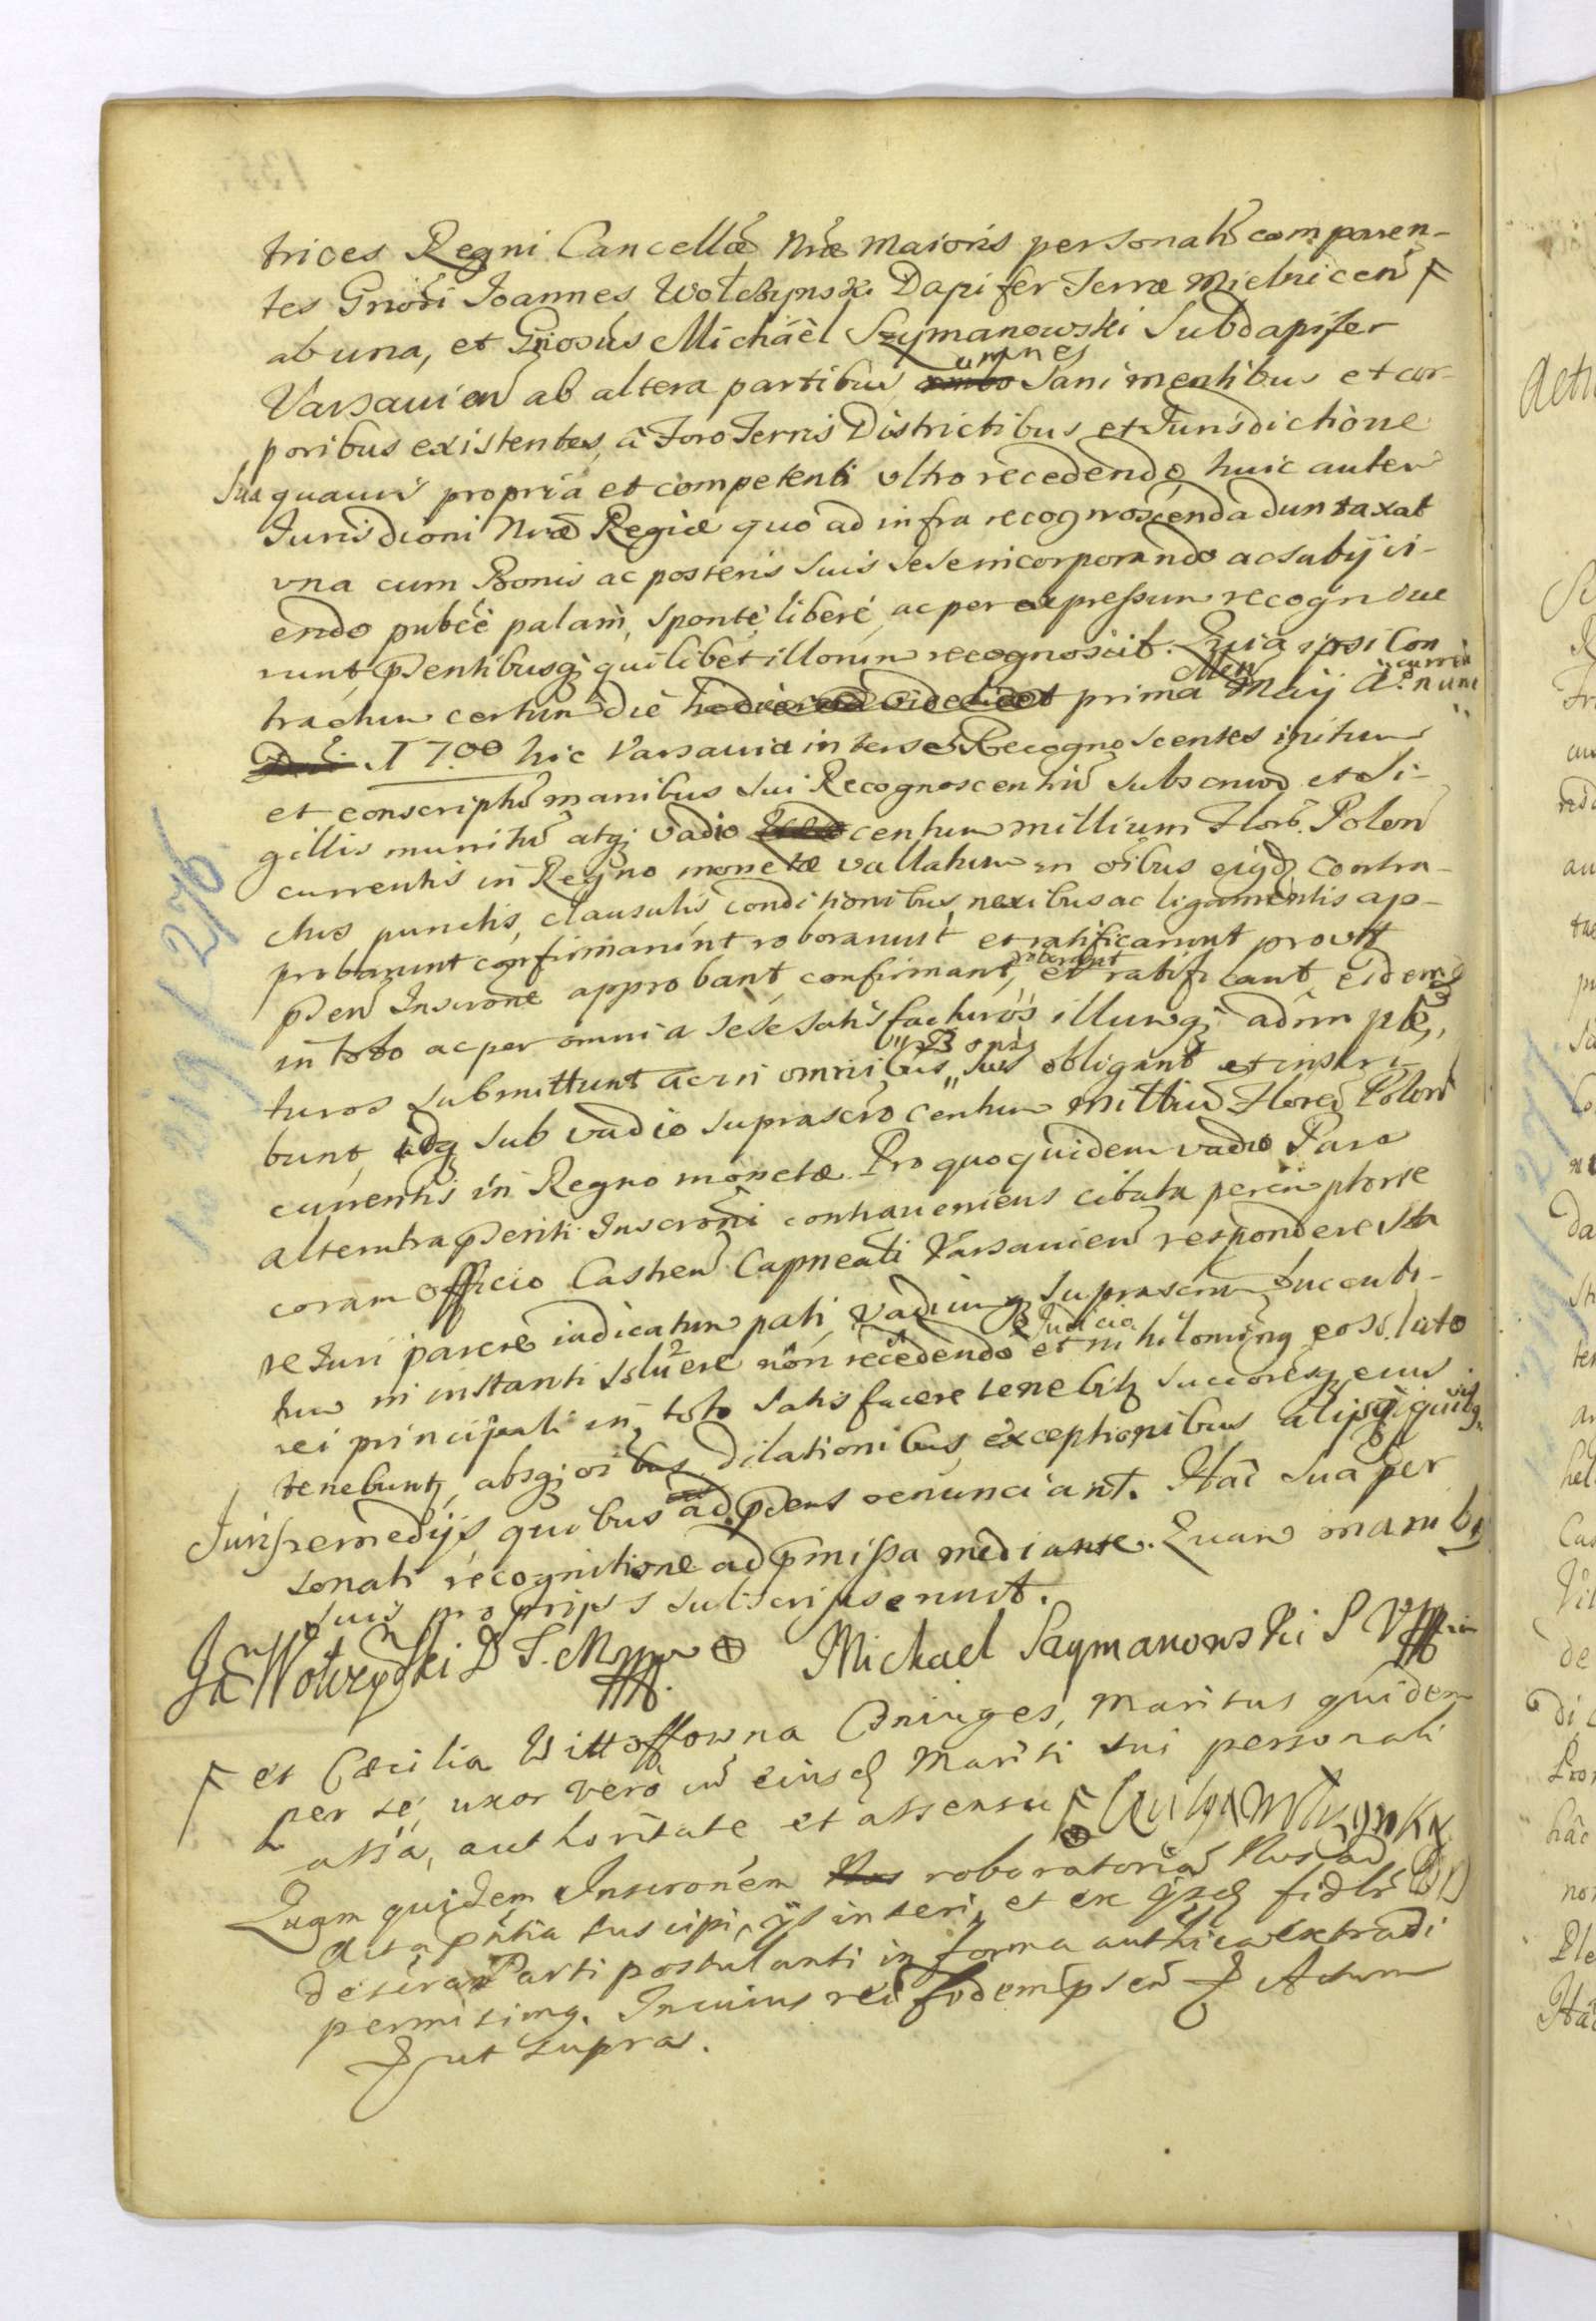 trices Regni Cancellæ Nræ Maioris personalr comparen-
tes Gnosi Joannes Wołczynski Dapifer Terræ Mielnicen
ab una, et Gnosus Michaël Szymanowski Subdapifer
omnes
Varsavien ab altera partibus ambo sani mentibus et cor-
poribus existentes, à Foro Terris Districtibus et Jurisdictione
sua quavis propria et competenti ultro recedendo, huic autem
Jurisdioni Nræ Regiæ quo ad infra recognoscenda duntaxat
una cum Bonis ac posteris suis sese incorporando ac subijci-
endo pubcè palam, sponte, liberè, ac per expressum recognove
runt, psentibusq quilibet illorum recognoscit. Quia ipsi Con
tractum certum die prima Maij Ao nunc
1700 hic Varsavia inter se Recognoscentes initum
et conscriptu manibus sui Recognoscentiu subscriptu et si-
gillis munitu atq vadio centum millium Flor. Polon
currentis in Regno monetæ vallatum in oibus eiusd Contra-
ctus punctis, clausulis, conditionibus, nexibus ac ligamentis ap-
probarunt confirmarunt roborarunt et ratificarunt prout
roborant
psen Inscrone approbant confirmant, et ratificant, eidemq
in toto ac per omnia sese satisfacturos illumq adim ple-
Bonis
turos submittunt ac in omnibus suis obligant et inscri-
bunt, idq sub vadio suprascro centum milliu Floren Polon
currentis in Regno monetæ. Pro quo quidem vadio Pars
alterutra psenti Inscroni contraveniens citata peremptorie
coram Officio Castren Capneali Varsavien respondere sta
re Juri parere iudicatum pati, vadiumq suprascru succubi-
à Judicio
tum in instanti soluere non recedendo et nihilominq eo soluto
rei principali in toto satisfacere tenebitq succoresq eius
tenebuntq, absq oibus dilationibus, exceptionibus alijsq quibusvis
Juris remedijs quibus ad psens renunciant. Hac sua per
sonali recognitione ad pmissa mediante. Quam manibq
suis proprijs subscripserunt.
Jan Wołczynski D T. M mpp ⊕ Michael Szymanowski S V mpp
et Cæcilia Wittoffowna Coniuges, Maritus quidem
per se, uxor verò in eiusd Mariti sui personali
assa, authoritate et assensu
Quam quidem Inscronem roboratoria Nos ad
Acta pntia suscipi, ijs inseri, et ex ijsd fidelr
desuaz Parti postulanti in forma authica extradi
permisimq. In cuius rei fidem psen Actum
ut supra.
135